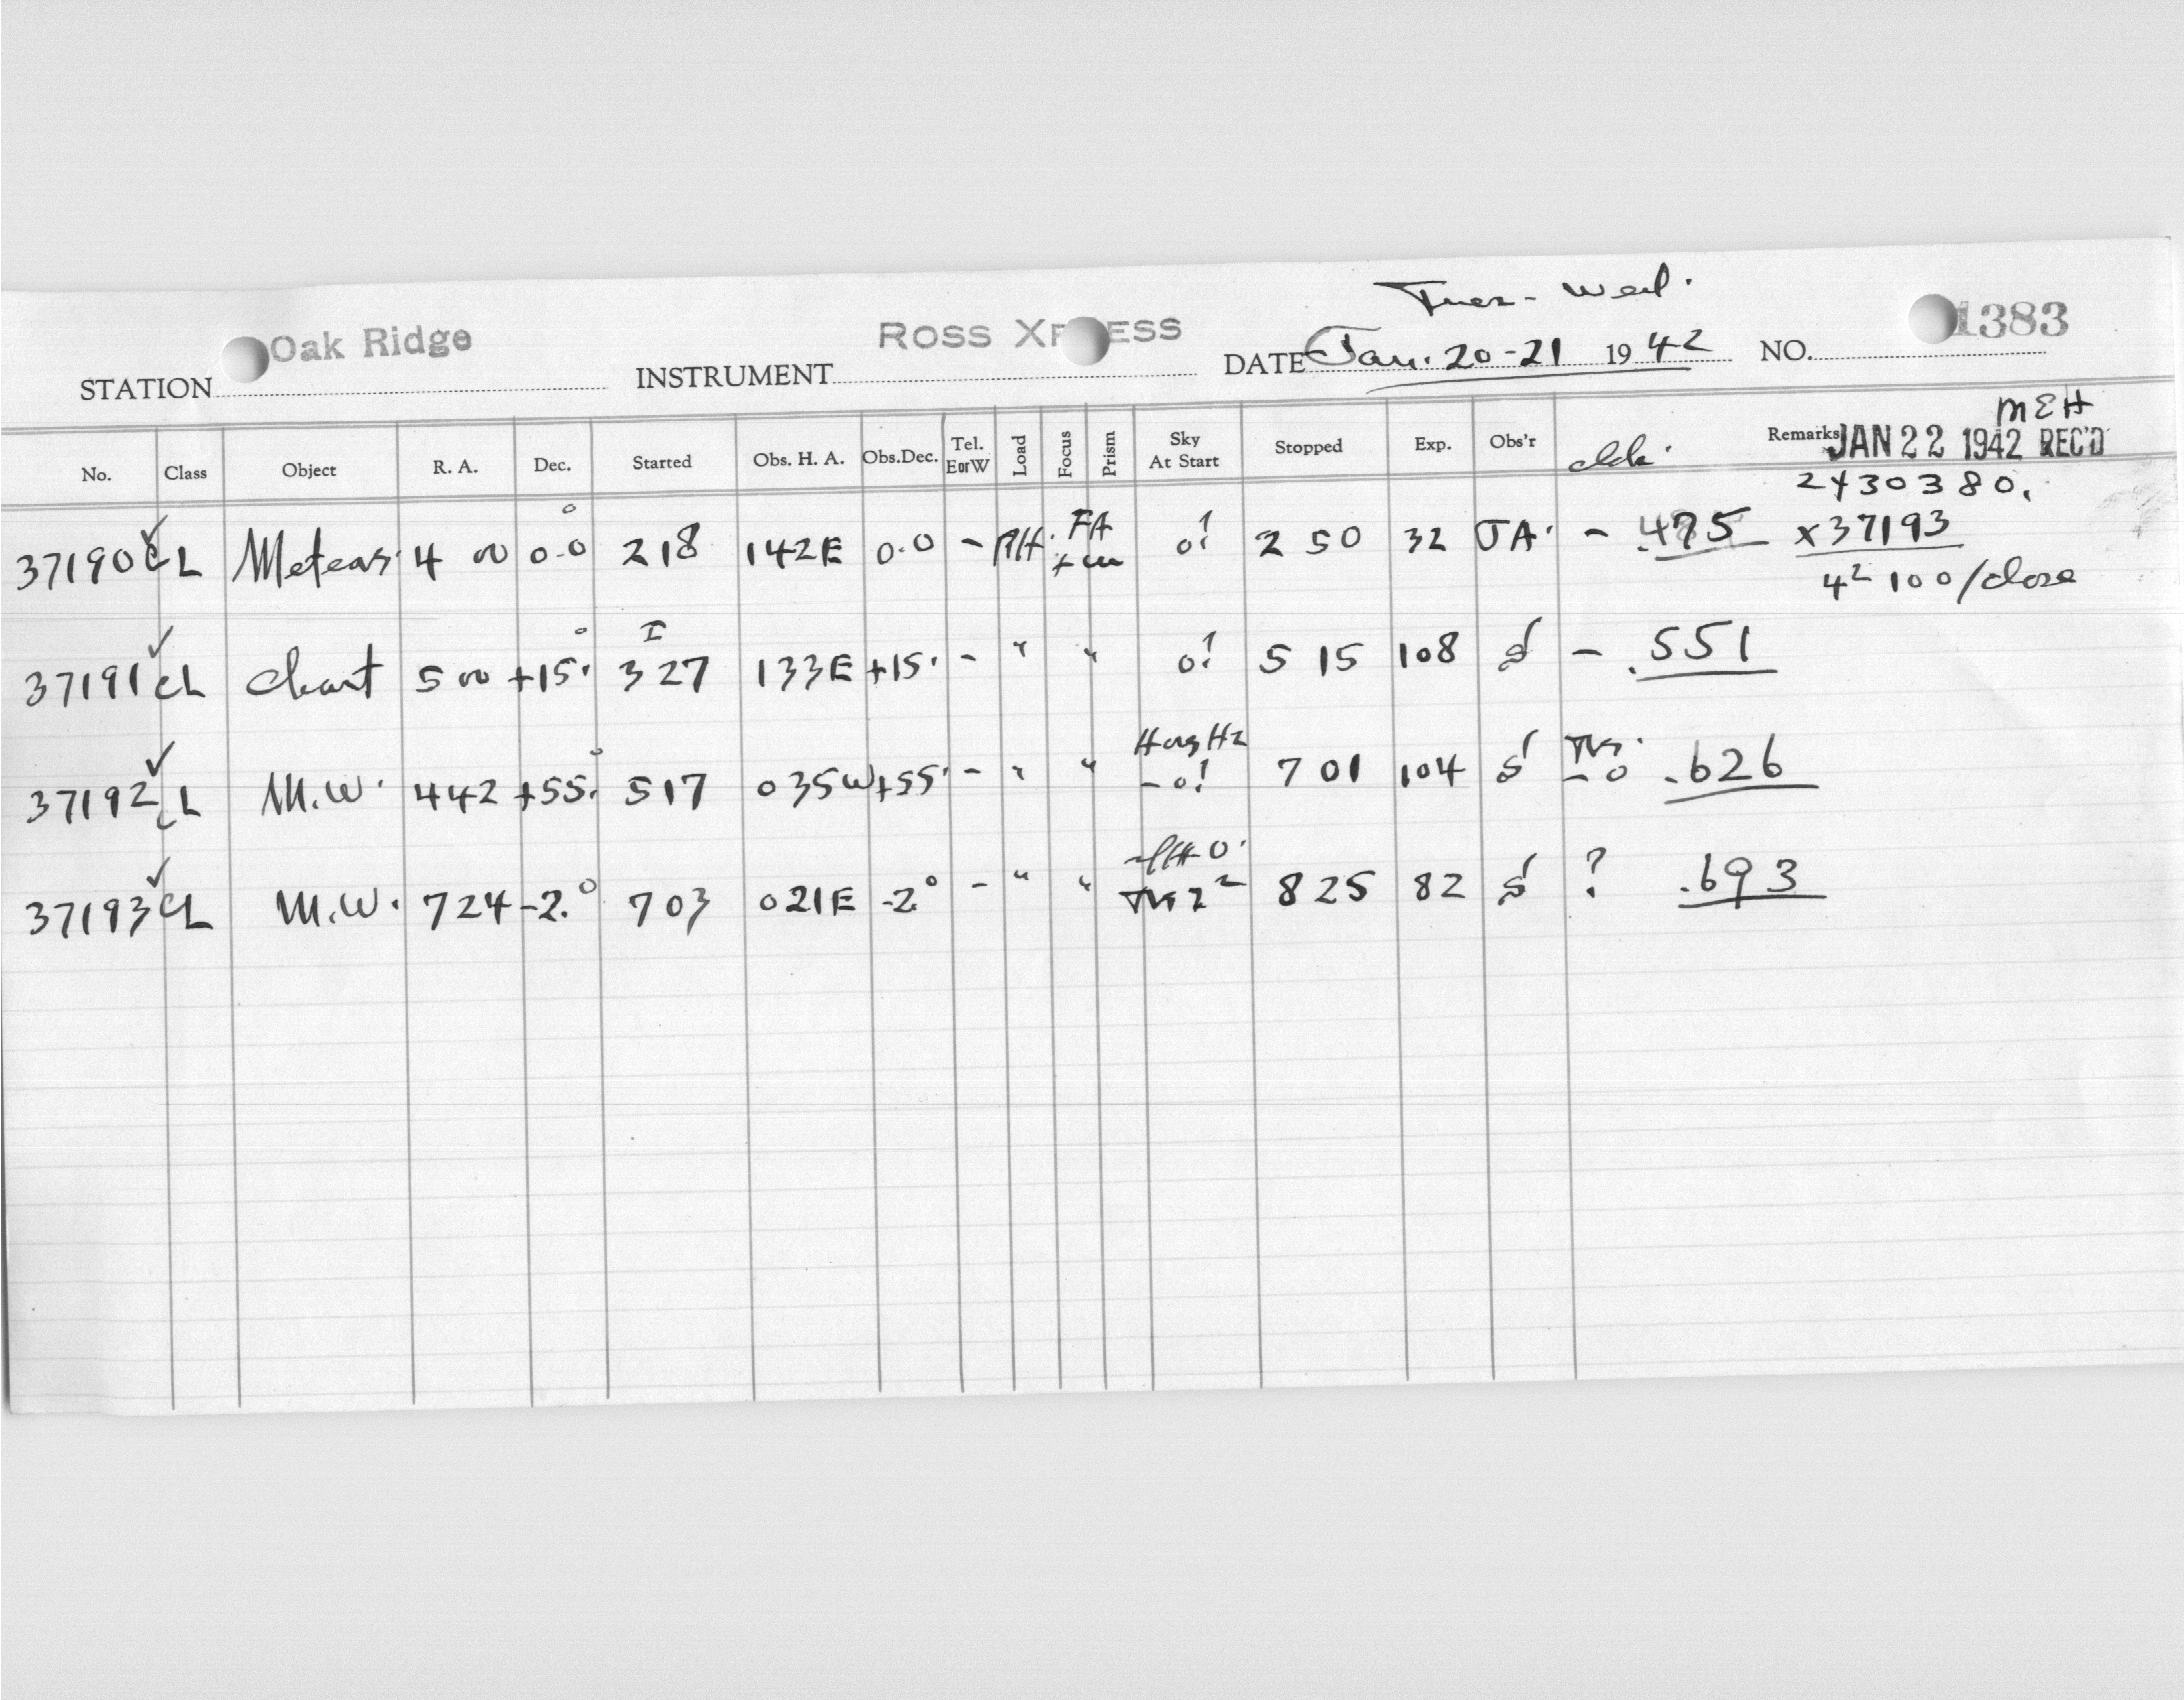 Tues - Wed.
STATION Oak Ridge INSTRUMENT ROSS XPRESS DATE Jan. 20-21 1942 NO. 1383
MEH
No. Class Object R. A. Dec. Started Obs. H. A. Obs.Dec. Tel. E or W Load Focus Prism Sky At Start Stopped Exp. Obs'r Remarks JAN 22 1942 REC'D
2430380.
37190 CL Meteors 4 00 0.0° 218 142E 0.0 - FA 0! 2 50 32 JA. - .475 x37193
4² 100/close
I
37191 CL Chart 5 00 +15.° 327 133E +15. - " " 0! 5 15 108 S - .551
37192 CL M.W. 442 +55.° 517 035W +55. - " " -0! 701 104 S -0 .626
37193 CL M.W. 724 -2.° 703 021E -2.° - " " 825 82 S ? .693